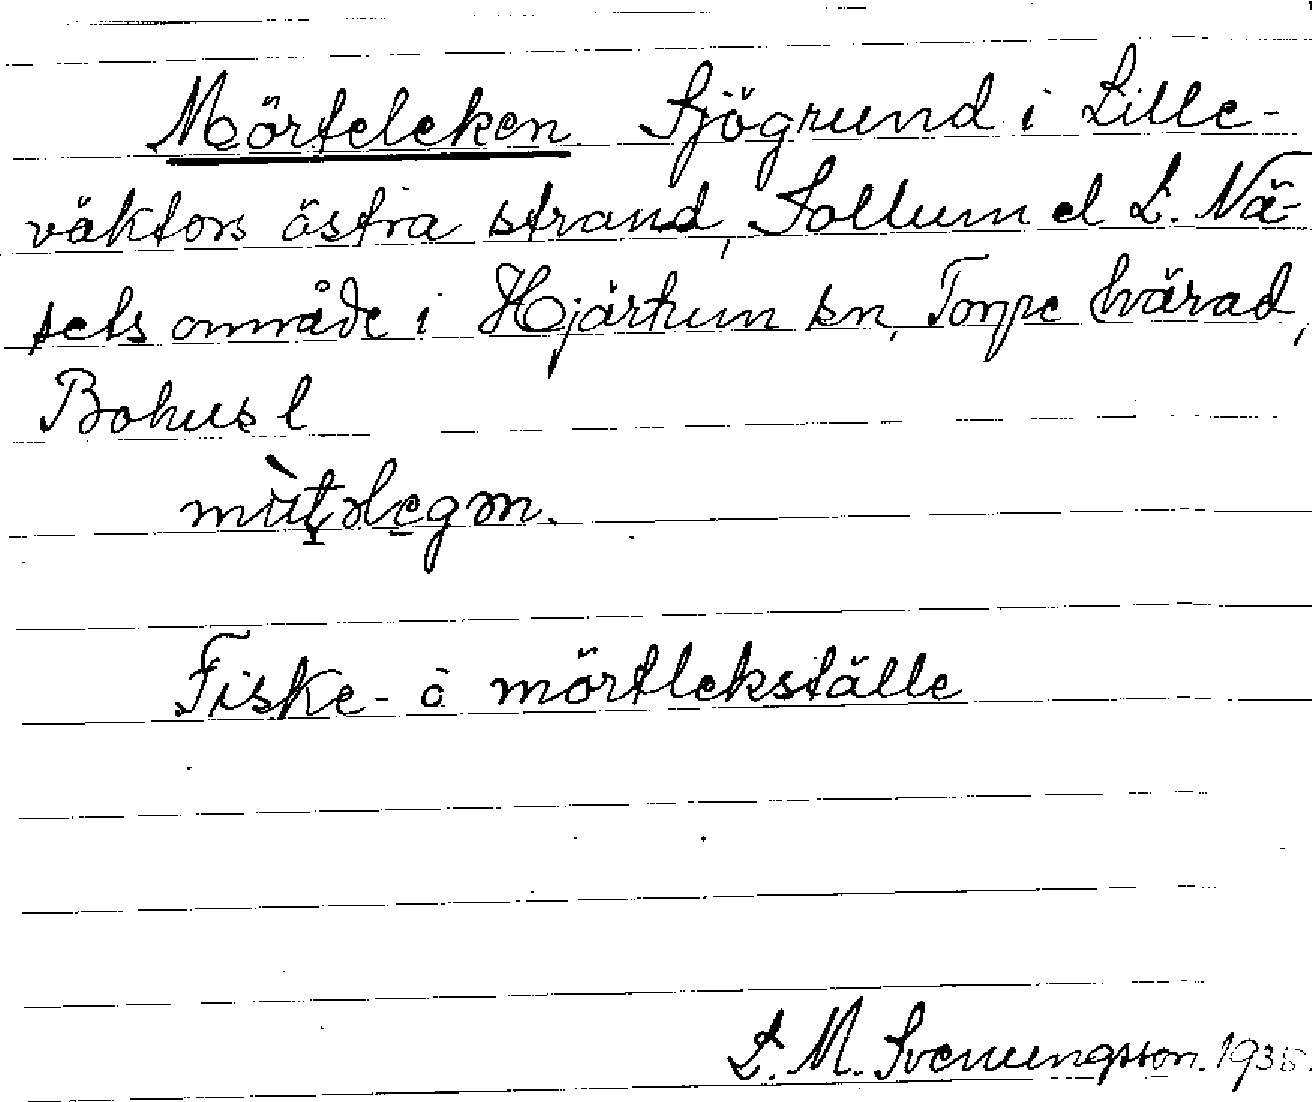 Mörteleken Sjögrund i Lille-
väktors östra strand, Sollum el L. Nä-
sets område i Hjärtum sn, Torpe härad,
Bohus l
Fiske- o mörtlekställe
L. M. Svenungsson. 1935.